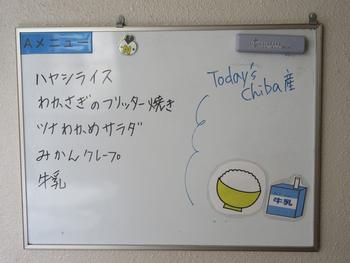 Aメニュー
ハヤシライス
わかさぎのフリッター焼き
ツナわかめサラダ
みかんクレープ
牛乳
Today's
Chiba産
牛乳